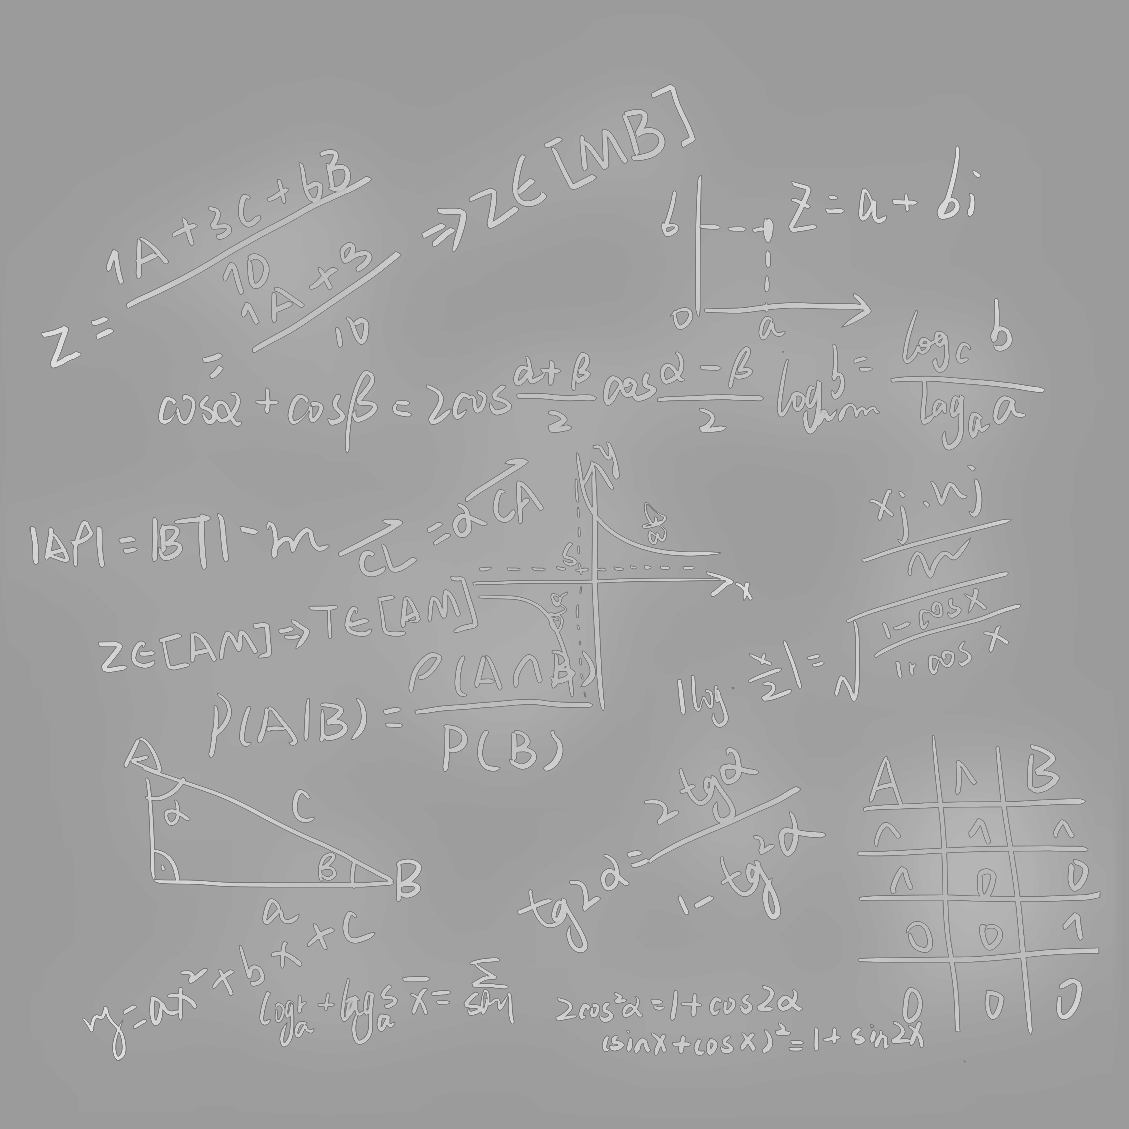 Z = 1A + 3C + 6B / 10 ⇒ Z ∈ [MB]
= 1A × 3 / 10
b Z = a + bi
0 a
cosα + cosβ = 2cos α+β / 2 cos α-β / 2
log b = log_c b / lag_a a
|AP| = |BT| - m CL = α CA
y
x
S
x_j . n_j / n
Z ∈ [AM] ⇒ T ∈ [AM]
| log x/2 | = √ 1 - cosx / 1 + cos x
P(A|B) = P(A∩B) / P(B)
A
α C
β B
a
tg2α = 2tgα / 1 - tg²α
A ^ B
^ ^ ^
^ 0 0
0 0 1
0 0 0
y = ax² × b x × c
log_a r + lag_a s x̄ = Σ
2cos²α = 1 + cos2α
(sinx + cosx)² = 1 + sin2x